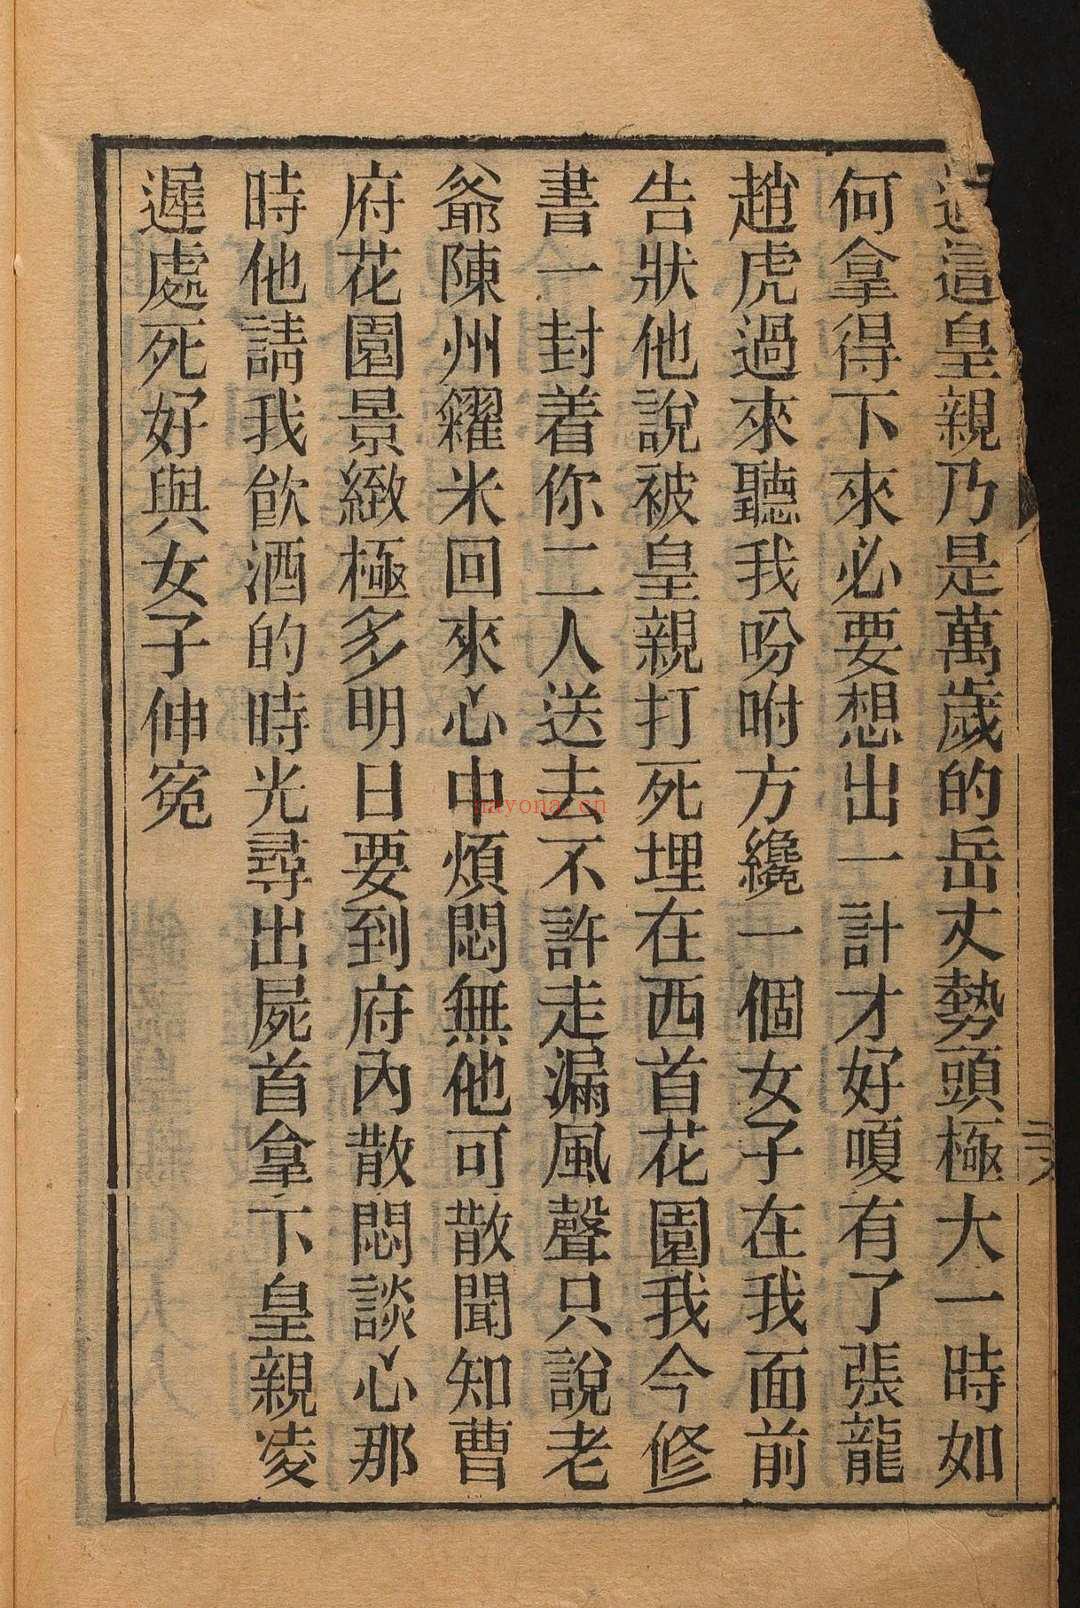 這皇親乃是萬歲的岳丈勢頭極大一時如
何拿得下來必要想出一計才好嗄有了張龍
趙虎過來聽我吩咐方纔一個女子在我面前
告狀他說被皇親打死埋在西首花園我今修
書一封着你二人送去不許走漏風聲只說老
爺陳州糴米回來心中煩悶無他可散聞知曹
府花園景緻極多明日要到府內散悶談心那
時他請我飮酒的時光尋出屍首拿下皇親凌
遲處死好與女子伸寃
nayona.cn